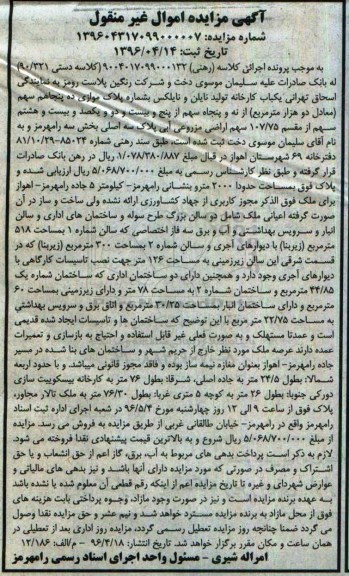 آگهی مزایده اموال غیر منقول
شماره مزایده: ۱۳۹۶۰۴۳۱۷۰۹۹۰۰۰۰۰۷
تاریخ ثبت: ۱۳۹۶/۰۴/۱۴
به موجب پرونده اجرائی کلاسه (رهنی) ۹۰۰۴۰۱۷۰۹۹۰۰۰۱۳۲ (کلاسه دستی ۹۰/۳۲۱)
له بانک صادرات علیه سلیمان موسوی دخت و شرکت رنگین پلاست رومز به نمایندگی
اسحاق تهرانی یکباب کارخانه تولید نایلون و نایلکس بشماره پلاک موازی ده پنجاهم سهم
(معادل دو هزار مترمربع) از نه و پنجاه سهم از پنج و بیست و دو و یکصد و بیست و هشتم
سهم از مقسم ۱۰۷/۷۵ سهم اراضی مزروعی آبی پلاک سه اصلی بخش سه رامهرمز و به
نام آقای سلیمان موسوی دخت ثبت شده است، طبق سند رهنی شماره ۸۵۰۲۴-۸۱/۱۰/۲۹
دفترخانه ۶۹ شهرستان اهواز در قبال مبلغ ۱/۰۷۸/۳۸۰/۸۸۷ ریال در رهن بانک صادرات
قرار گرفته و طبق نظر کارشناس رسمی به مبلغ ۵/۰۶۸/۷۰۰/۰۰۰ ریال ارزیابی شده و
پلاک فوق بمساحت حدودا ۲۰۰۰ مترو بنشانی رامهرمز- کیلومتر ۵ جاده رامهرمز- اهواز
برای ملک فوق الذکر مجوز کاربری از جهاد کشاورزی ارائه نشده ولی ساخت و ساز در آن
صورت گرفته اعیانی ملک شامل دو سالن بزرگ طرح سوله و ساختمان های اداری و سالن
انبار و سرویس بهداشتی و آب و برق سه فاز اختصاصی که سالن شماره ۱ بمساحت ۵۱۸
مترمربع (زیربنا) با دیوارهای آجری و سالن شماره ۲ بمساحت ۳۰۰ مترمربع (زیربنا) که در
قسمت شرقی این سالن زیرزمینی به مساحت ۱۲۶ متر جهت نصب تاسیسات کارگاهی با
دیوارهای آجری وجود دارد و همچنین دارای دو ساختمان اداری که ساختمان شماره یک
۴۴/۸۵ مترمربع و ساختمان شماره ۲ به مساحت ۷۸ متر و دارای زیرزمینی بمساحت ۶۰
مترمربع و دارای ساختمان انبار بمساحت ۳۰/۲۵ مترمربع و اتاق برق و سرویس بهداشتی
به مساحت ۲۲/۷۵ متر مربع با این توضیح که ساختمان ها و تاسیسات ایجاد شده قدیمی
است و عمدتا مستهلک و به صورت فعلی غیر قابل استفاده و احتیاج به بازسازی و تعمیرات
عمده دارند عرصه ملک مورد نظر خارج از حریم شهر و ساختمان های بنا شده در مسیر
جاده رامهرمز- اهواز بعنوان مغازه نیمه ساز بوده و فاقد مجوز قانونی میباشد. و با حدود اربعه
شمالا: بطول ۲۴/۵ متر به جاده اصلی، شرقا: بطول ۷۶ متر به کارخانه بیسکوییت سازی
دورکی جنوبا: بطول ۲۶ متر به کوچه ۵ متری غربا: بطول ۷۶/۳۰ متر به ملک تالار مجاور،
پلاک فوق از ساعت ۹ الی ۱۲ روز چهارشنبه مورخ ۹۶/۵/۴ در شعبه اجرای اداره ثبت اسناد
رامهرمز واقع در رامهرمز- خیابان طالقانی غربی از طریق مزایده به فروش می رسد. مزایده
از مبلغ ۵/۰۶۸/۷۰۰/۰۰۰ ریال شروع و به بالاترین قیمت پیشنهادی نقدا فروخته می شود.
لازم به ذکر است پرداخت بدهی های مربوط به آب، برق، گاز اعم از حق انشعاب و یا حق
اشتراک و مصرف در صورتی که مورد مزایده دارای آنها باشد و نیز بدهی های مالیاتی و
عوارض شهرداری و غیره تا تاریخ مزایده اعم از اینکه رقم قطعی آن معلوم شده یا نشده باشد
به عهده برنده مزایده است و نیز در صورت وجود مازاد، وجوه پرداختی بابت هزینه های
فوق از محل مازاد به برنده مزایده مسترد خواهد شد و نیم عشر و حق مزایده نقدا وصول
می گردد ضمنا چنانچه روز مزایده تعطیل رسمی گردد، مزایده روز اداری بعد از تعطیلی در
همان ساعت و مکان مقرر برگزار خواهد شد. تاریخ انتشار: ۹۶/۴/۱۸ - م/الف: ۱۲/۱۸۶
امراله شیری - مسئول واحد اجرای اسناد رسمی رامهرمز